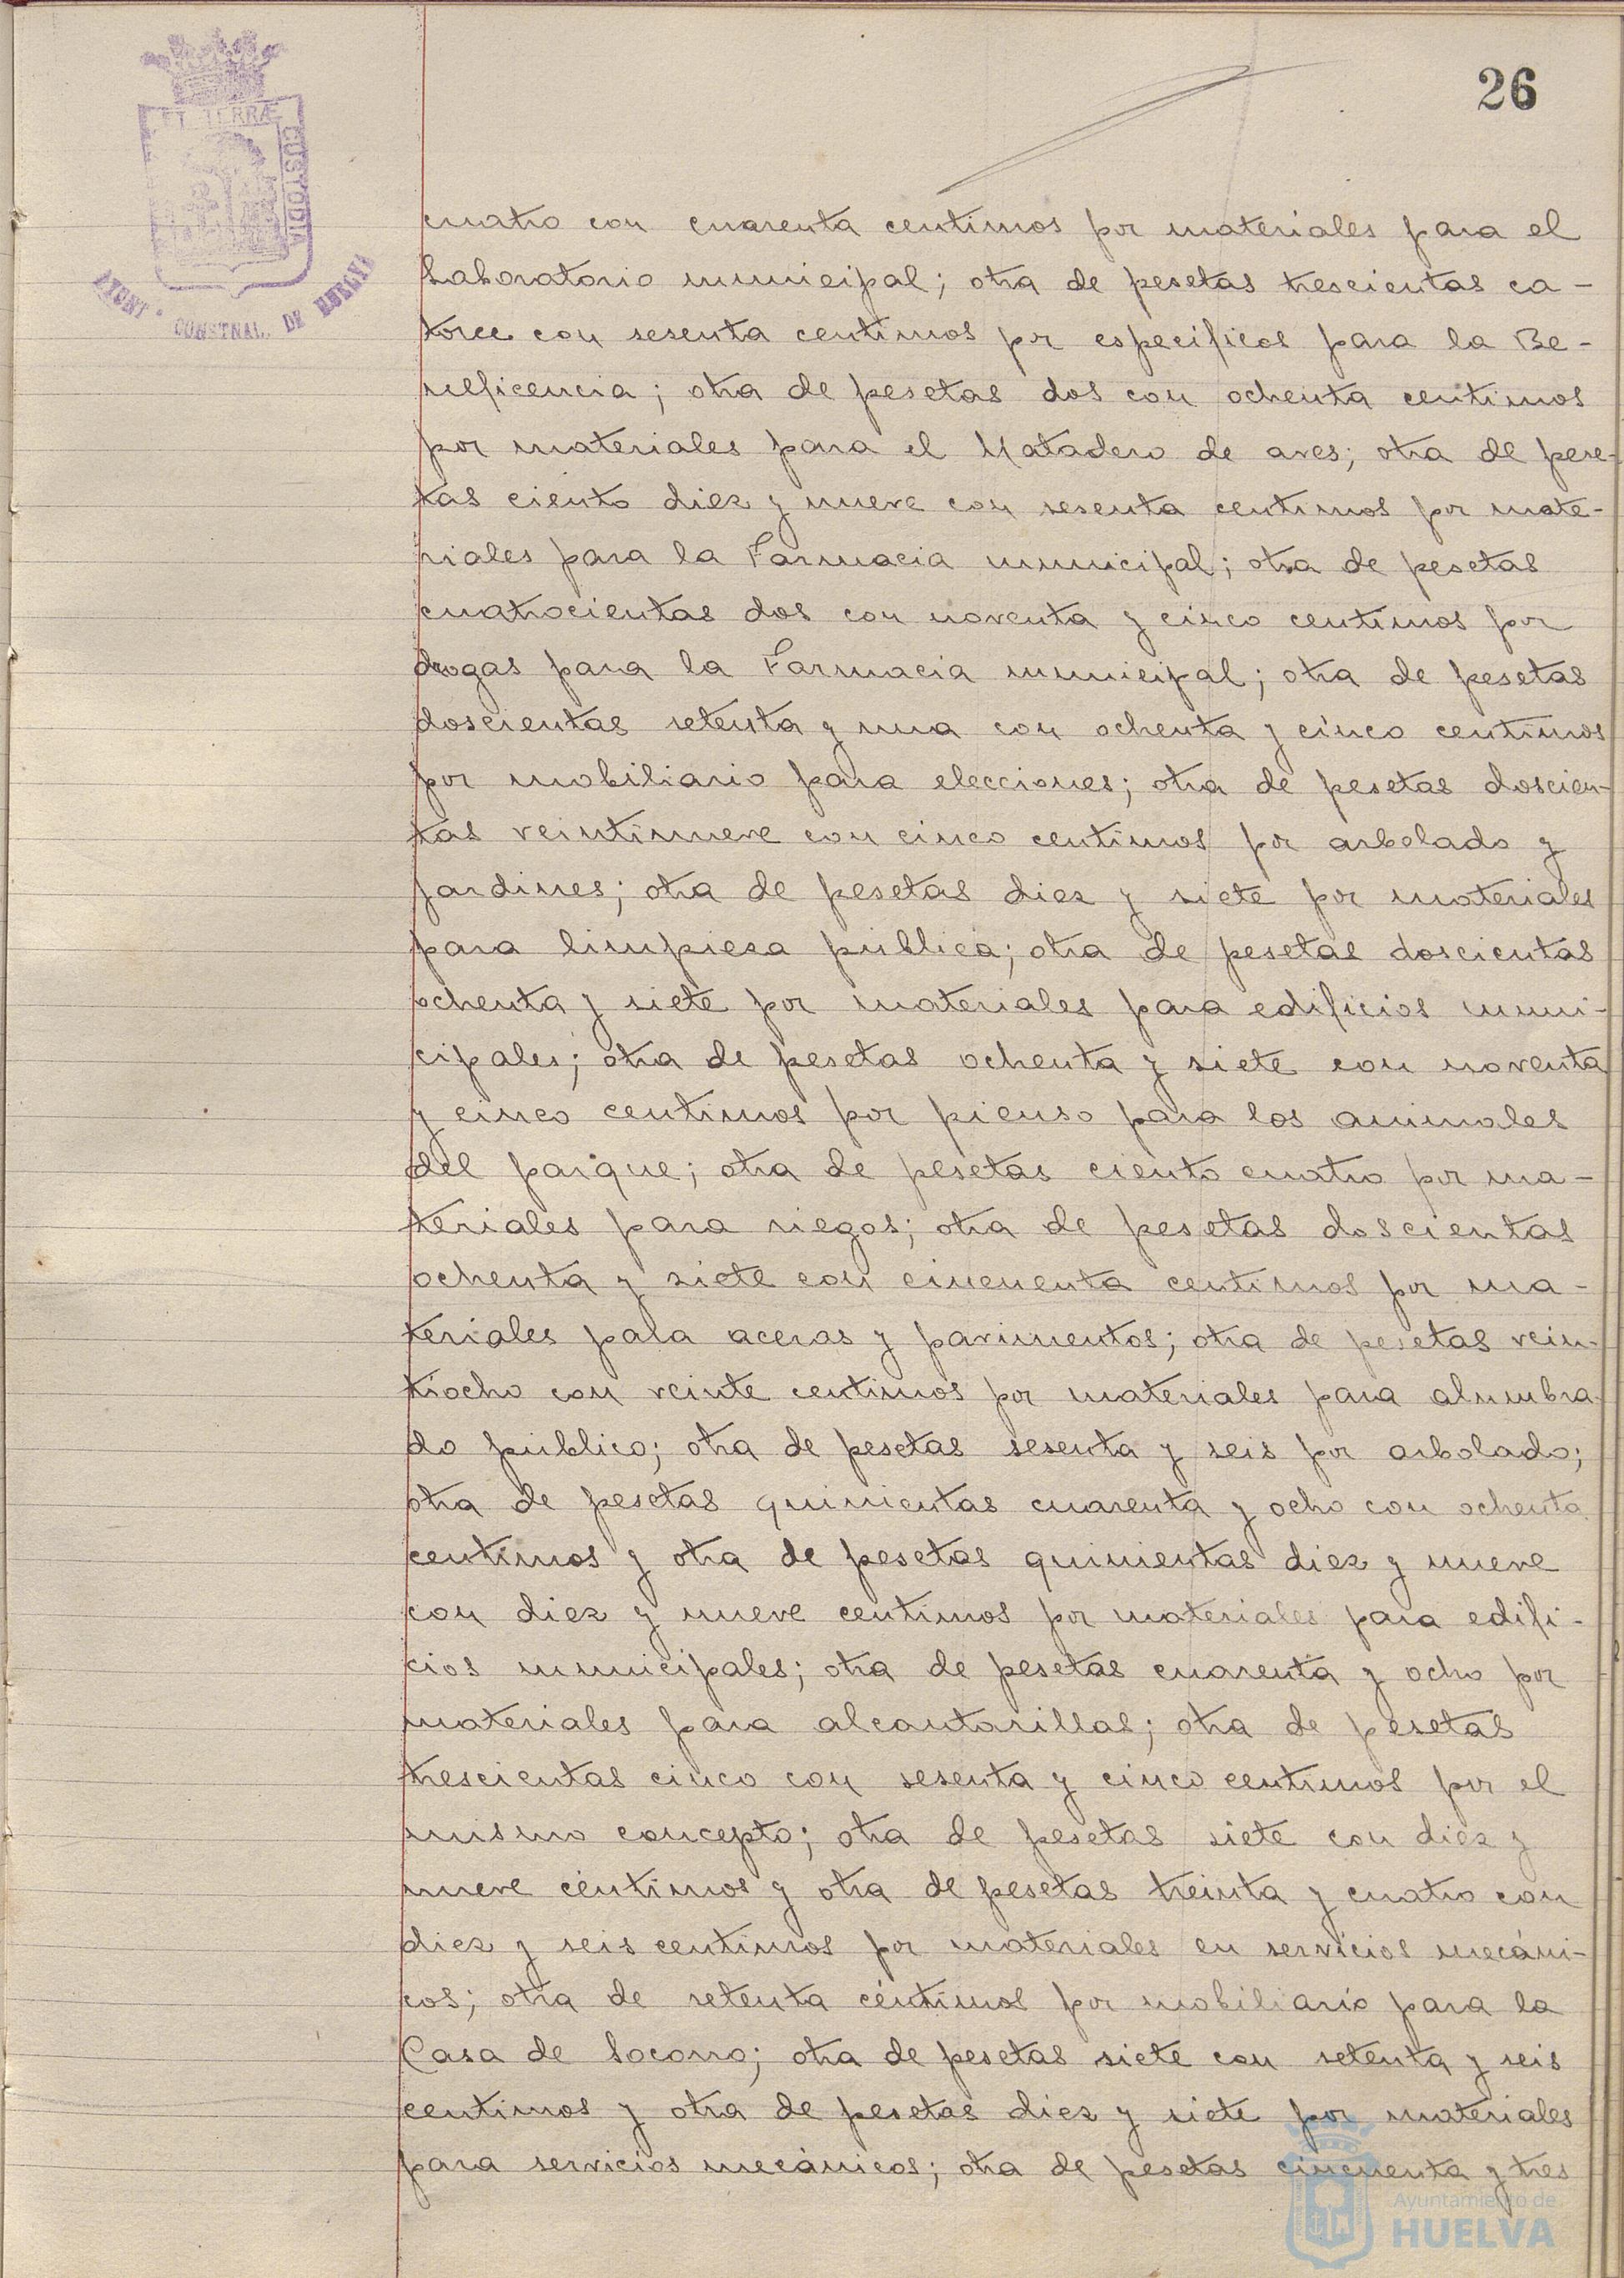 26
ET TERRÆ
CUSTODIA
AYUNT° CONSTNAL. DE HUELVA
cuatro con cuarenta centimos por materiales para el
Laboratorio municipal; otra de pesetas trescientas ca-
torce con sesenta centimos por especificos para la Be-
neficencia; otra de pesetas dos con ochenta centimos
por materiales para el Matadero de aves; otra de pese-
tas ciento diez y nueve con sesenta centimos por mate-
riales para la Farmacia municipal; otra de pesetas
cuatrocientas dos con noventa y cinco centimos por
drogas para la Farmacia municipal; otra de pesetas
doscientas setenta y una con ochenta y cinco centimos
por mobiliario para elecciones; otra de pesetas doscien-
tas veintinueve con cinco centimos por arbolado y
jardines; otra de pesetas diez y siete por materiales
para limpieza pública; otra de pesetas doscientas
ochenta y siete por materiales para edificios muni-
cipales; otra de pesetas ochenta y siete con noventa
y cinco centimos por pienso para los animales
del parque; otra de pesetas ciento cuatro por ma-
teriales para riegos; otra de pesetas doscientas
ochenta y siete con cincuenta centimos por ma-
teriales para aceras y pavimentos; otra de pesetas vein-
tiocho con veinte centimos por materiales para alumbra-
do público; otra de pesetas sesenta y seis por arbolado;
otra de pesetas quinientas cuarenta y ocho con ochenta
centimos y otra de pesetas quinientas diez y nueve
con diez y nueve centimos por materiales para edifi-
cios municipales; otra de pesetas cuarenta y ocho por
materiales para alcantarillas; otra de pesetas
trescientas cinco con sesenta y cinco centimos por el
mismo concepto; otra de pesetas siete con diez y
nueve céntimos y otra de pesetas treinta y cuatro con
diez y seis centimos por materiales en servicios mecáni-
cos; otra de setenta céntimos por mobiliario para la
Casa de Socorro; otra de pesetas siete con setenta y seis
centimos y otra de pesetas diez y siete por materiales
para servicios mecánicos; otra de pesetas cincuenta y tres
Ayuntamiento de
HUELVA